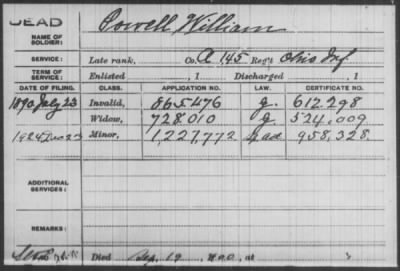 DEAD
NAME OF SOLDIER: Powell William
SERVICE: Late rank, Co. A 145 Reg't Ohio Inf.
TERM OF SERVICE: Enlisted , 1 Discharged , 1
DATE OF FILING. CLASS. APPLICATION NO. LAW. CERTIFICATE NO.
1890 July 23 Invalid, 865476 g. 612.298
Widow, 728.010 g. 524,009
1924 23 Minor, 1,227,772 958,328
ADDITIONAL SERVICES:
REMARKS:
Died Sep. 19